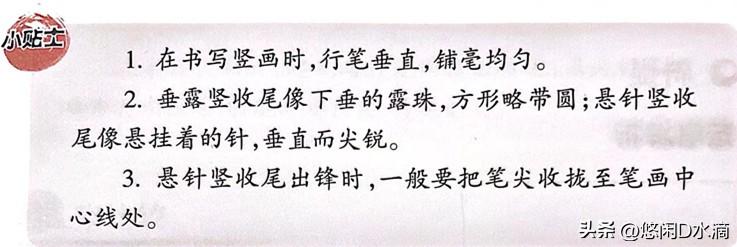 小贴士
1. 在书写竖画时,行笔垂直,铺毫均匀。
2. 垂露竖收尾像下垂的露珠,方形略带圆;悬针竖收
尾像悬挂着的针,垂直而尖锐。
3. 悬针竖收尾出锋时,一般要把笔尖收拢至笔画中
心线处。
头条 @悠闲D水滴